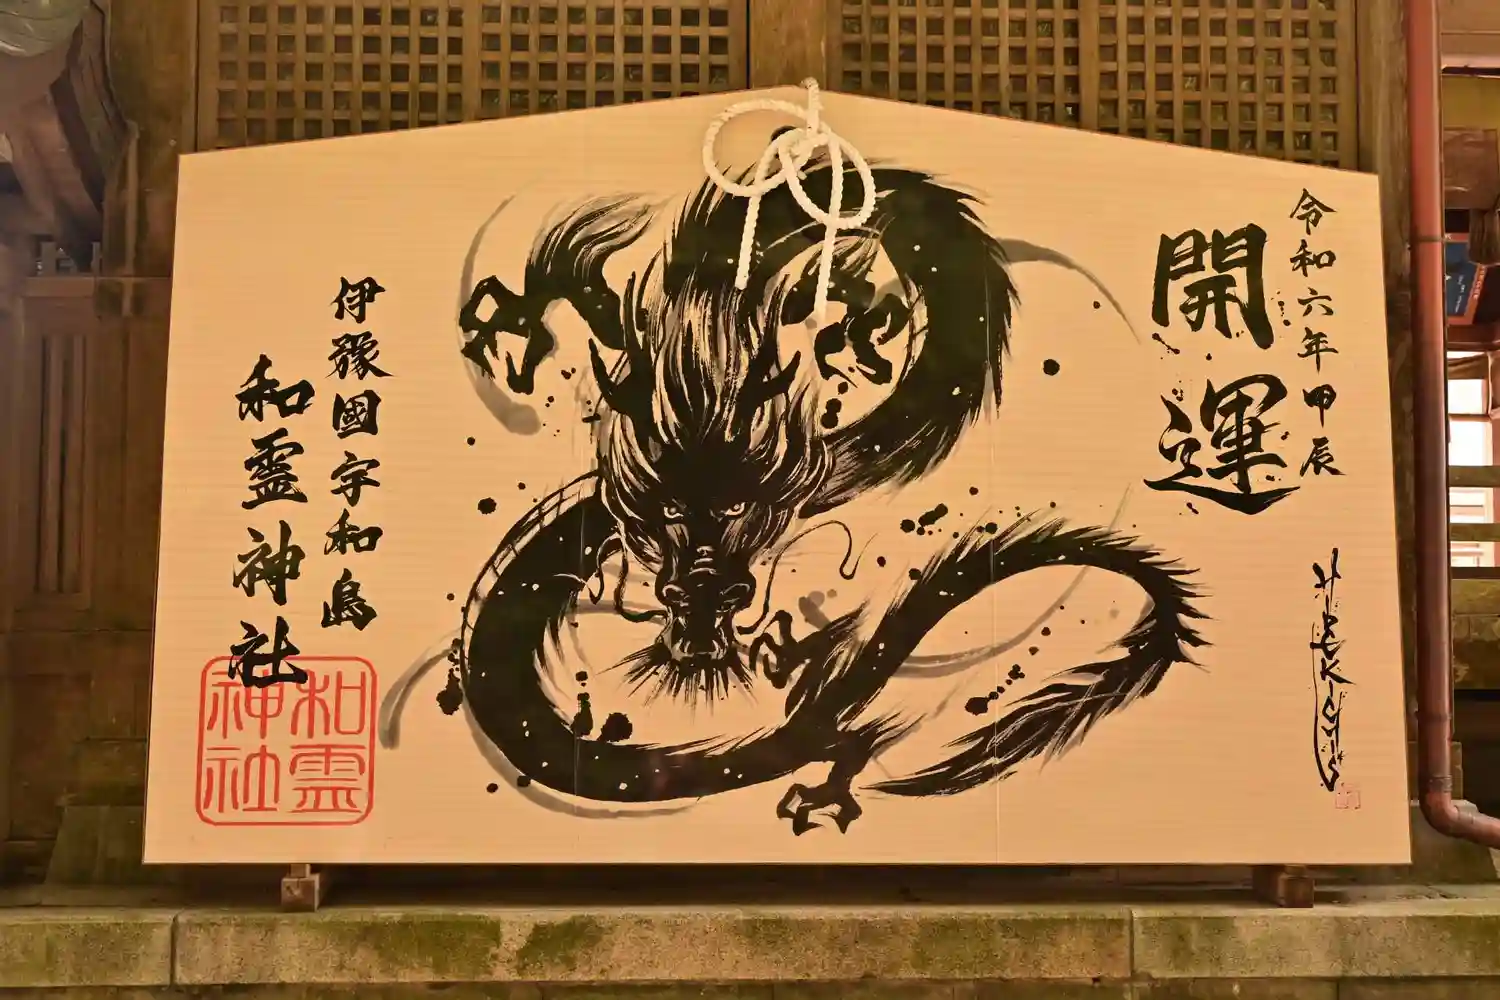 令和六年甲辰
開運
伊豫國宇和島
和霊神社
和霊
神社